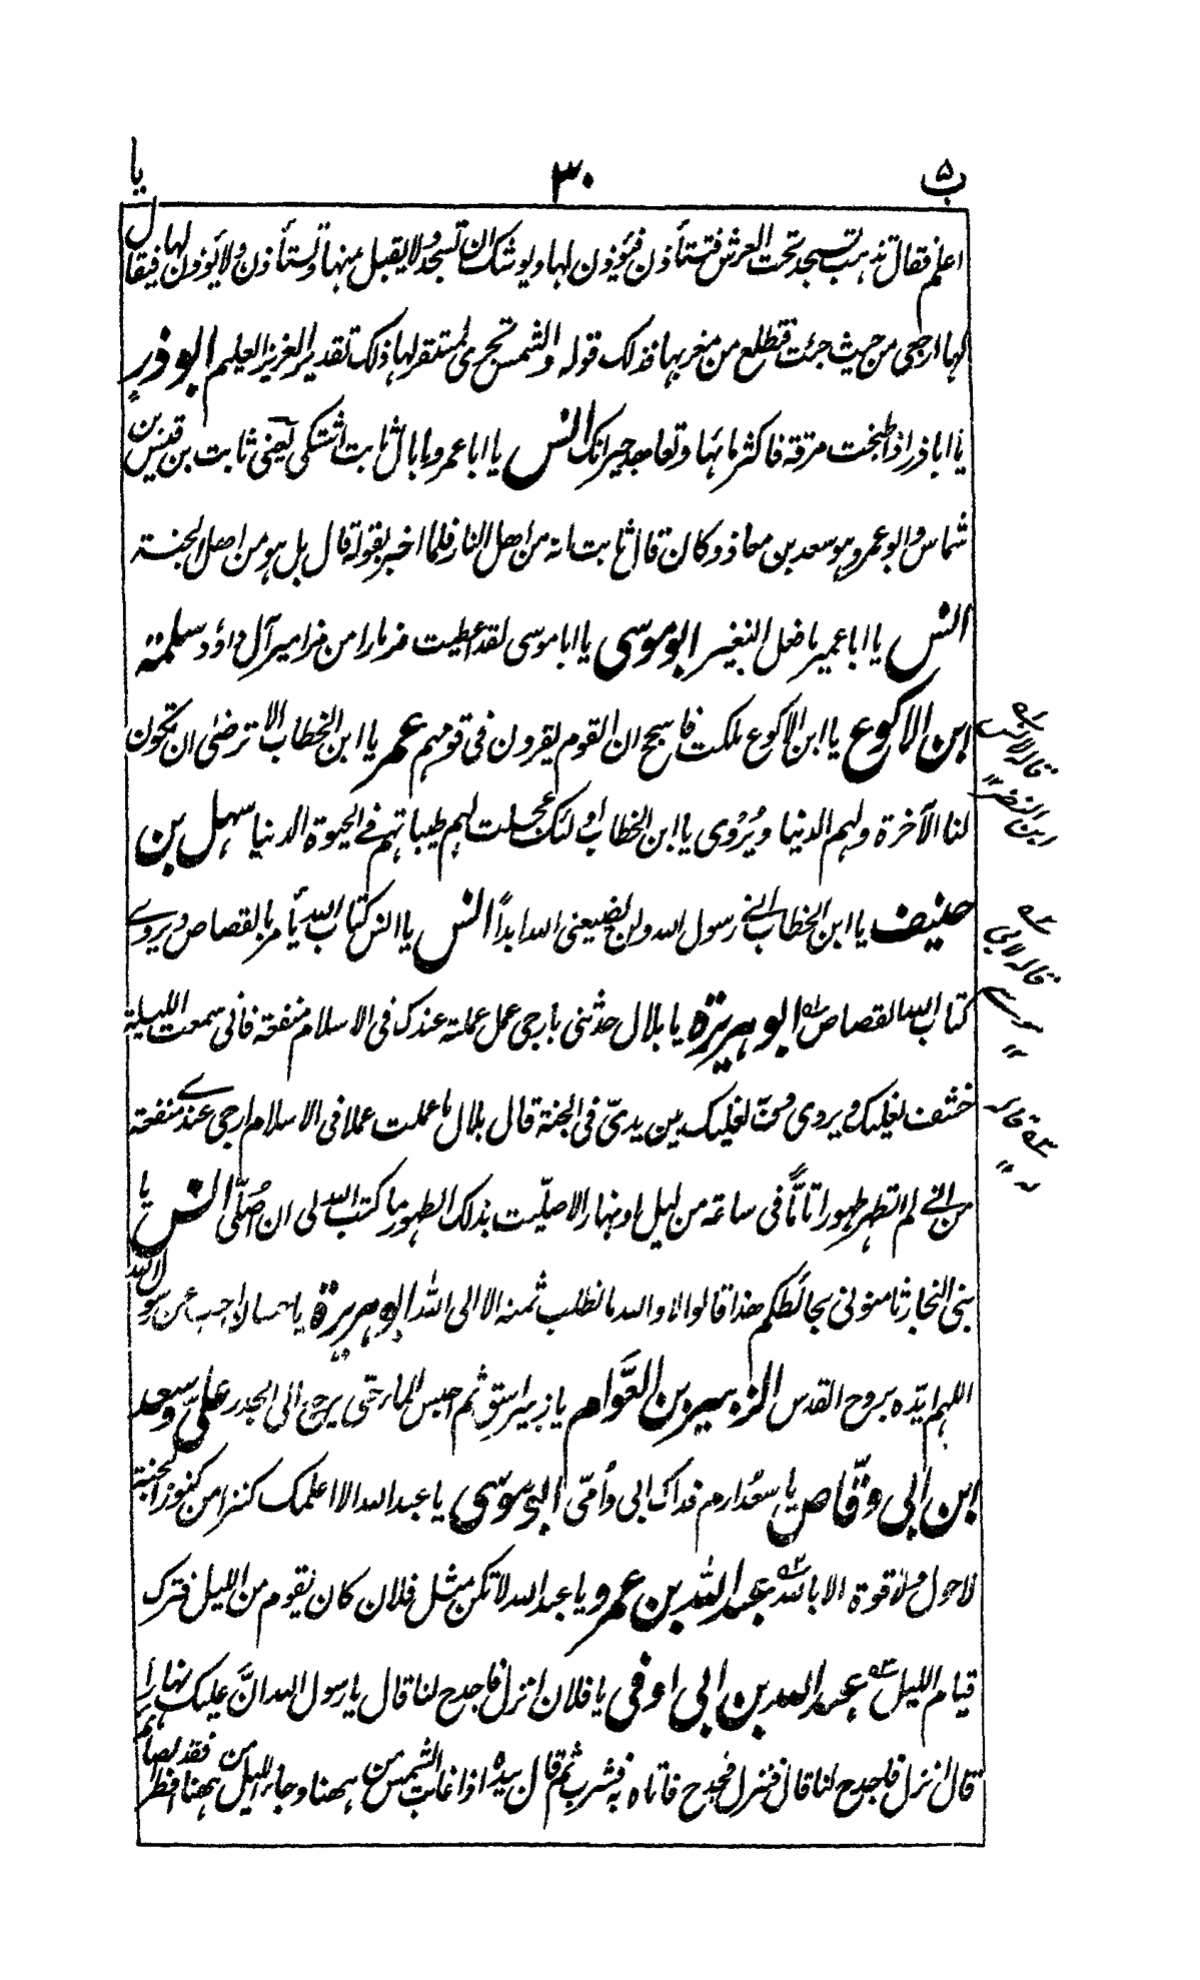 ب ۵ ۳۰ يا
اعلم فقال تذهب تسجد تحت العرش فتستأذن فيؤذن لها ويوشك ان تسجد ولا يقبل منها وتستأذن ولا يؤذن لها فيقال
لها ارجعى من حيث جئت فتطلع من مغربها فذلك قوله والشمس تجرى لمستقر لها ذلك تقدير العزيز العليم ابو ذر
يا اباذر اذا طبخت مرقة فاكثر ماءها وتعاهد جيرانك انس يا ابا عمرو ما بال ثابت اشتكى يعنى ثابت بن قيس بن
شماس وابو عمرو هو سعد بن معاذ وكان قال ثابت انه من اهل النار فلما اخبر بقوله قال بل هو من اهل الجنة
انس يا ابا عمير ما فعل النغير ابو موسى يا ابا موسى لقد اعطيت مزمارا من مزامير آل داؤد سلمة
ابن الاكوع يا ابن الاكوع ملكت فاسجح ان القوم يقرون فى قومهم عمر يا ابن الخطاب الا ترضى ان تكون
لنا الآخرة ولهم الدنيا ويُرْوى يا ابن الخطاب اولئك عجلت لهم طيباتهم فى الحيوة الدنيا سهل بن
حنيف يا ابن الخطاب انى رسول الله ولن يضيعنى الله ابداً انس يا انس كتاب الله يأمر بالقصاص ويروى
كتاب الله القصاص ابو هريرة يا بلال حدثنى بارجى عمل عملته عندك فى الاسلام منفعة فانى سمعت الليلة
خشف نعليك ويروى دفّ نعليك بين يدىّ فى الجنة قال بلال ما عملت عملا فى الاسلام ارجى عندى منفعة
من انى لم اتطهر طهورا تامًّا فى ساعة من ليل او نهار الا صلّيت بذلك الطهور ما كتب الله لى ان اُصَلّى انس يا
بنى النجار ثامنونى بحائطكم هذا قالوا لا والله ما نطلب ثمنه الا الى الله ابو هريرة يا حسان اجب عن رسول الله
اللهم ايّده بروح القدس الزبير بن العَوَّام يا زبير اسق ثم احبس الماء حتى يرجع الى الجدر علىّ وسعد
ابن ابى وقّاص يا سعد ارم فداك ابى واُمّى ابو موسى يا عبد الله الا اعلمك كنزا من كنوز الجنة
لا حول ولا قوة الا بالله عبد الله بن عمرو يا عبد الله لا تكن مثل فلان كان يقوم من الليل فترك
قيام الليل عبد الله بن ابى اوفى يا فلان انزل فاجدح لنا قال يا رسول الله انَّ عليك نهارا
قال انزل فاجدح لنا قال فنزل فجدح فاتاه به فشرب ثم قال بيده اذا غابت الشمس من ههنا وجاء الليل من ههنا فقد افطر الصائم
قاله لانس
بن النضر
قاله لابى
موسى
قاله